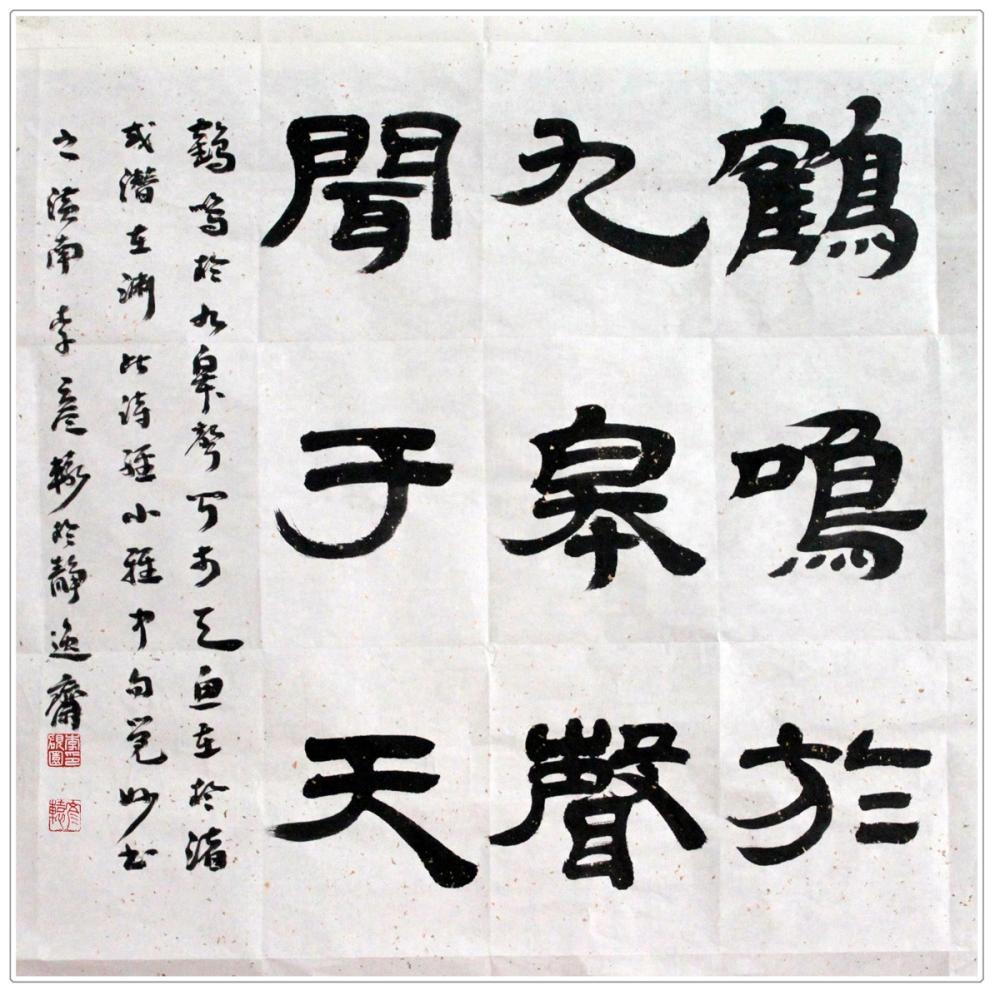 鶴鳴於
九皋聲
聞于天
鶴鳴於九皋聲聞于天魚在於渚
或潛在渊此詩經小雅中句覺妙书
之濟南李彦於靜逸齋